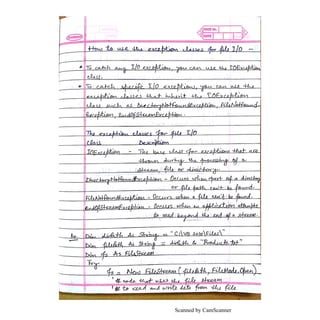 How to use the exception classes for file I/O -
* To catch any I/O exception, you can use the IOException
class.
* To catch specific I/O exceptions, you can use the
exception classes that inherit the IOException
class such as DirectoryNotFoundException, FileNotFound-
Exception, EndOfStreamException.
The exception classes for file I/O
Class Description
IOException - The base class for exceptions that are
thrown during the processing of a
stream, file or directory.
DirectoryNotFoundException - Occurs when part of a directory
or file path can't be found.
FileNotFoundException - Occurs when a file can't be found.
EndOfStreamException - Occurs when an application attempts
to read beyond the end of a stream.
Dim dirPath As String = "C:\VB 2010\Files\"
Dim filePath As String = dirPath & "Products.txt"
Dim fs As FileStream
Try
fs = New FileStream(filePath, FileMode.Open)
'# code that uses the file stream
'# to read and write data from the file
Scanned by CamScanner